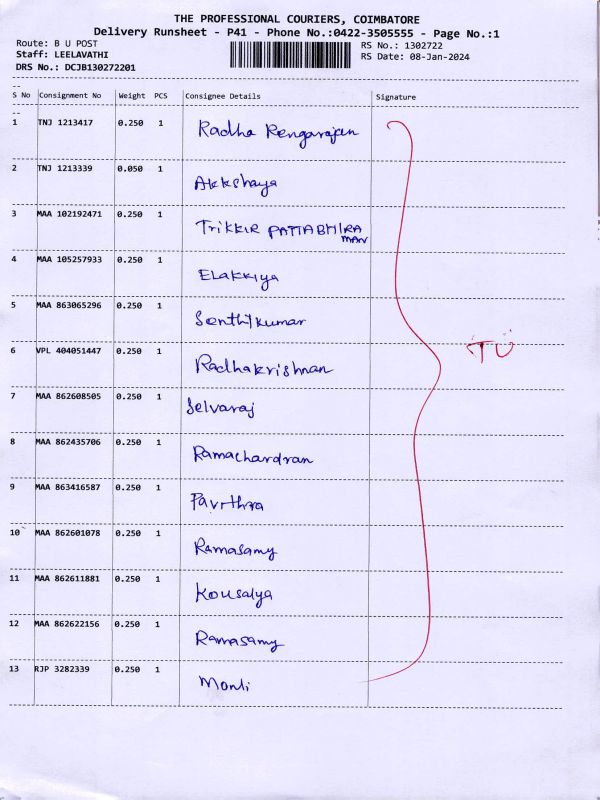 THE PROFESSIONAL COURIERS, COIMBATORE
Delivery Runsheet - P41 - Phone No.:0422-3505555 - Page No.:1
Route: B U POST RS No.: 1302722
Staff: LEELAVATHI RS Date: 08-Jan-2024
DRS No.: DCJB130272201
S No Consignment No Weight PCS Consignee Details Signature
1 TNJ 1213417 0.250 1 Radha Rengarajan
2 TNJ 1213339 0.050 1 Akkshaya
3 MAA 102192471 0.250 1 TRIKKIR PATTABHIRA
MAN
4 MAA 105257933 0.250 1 Elakkiya
5 MAA 863065296 0.250 1 Senthilkumar
6 VPL 404051447 0.250 1 Radhakrishnan
7 MAA 862608505 0.250 1 Selvaraj
8 MAA 862435706 0.250 1 Ramachandran
9 MAA 863416587 0.250 1 Pavithra
10 MAA 862601078 0.250 1 Ramasamy
11 MAA 862611881 0.250 1 Kousalya
12 MAA 862622156 0.250 1 Ramasamy
13 RJP 3282339 0.250 1